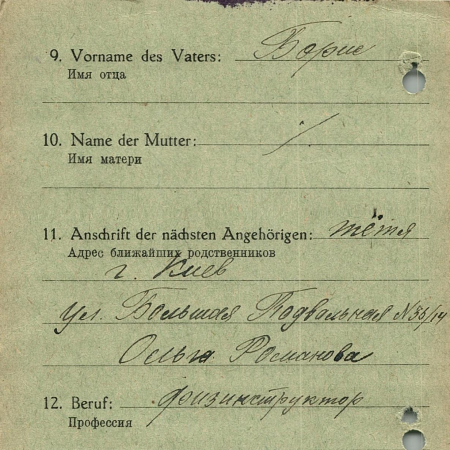 9. Vorname des Vaters: Борис
Имя отца
10. Name der Mutter: /.
Имя матери
11. Anschrift der nächsten Angehörigen: тётя
Адрес ближайших родственников
г. Киев
ул. Большая Подвальная N 35/14
Ольга Романова
12. Beruf: физинструктор
Профессия